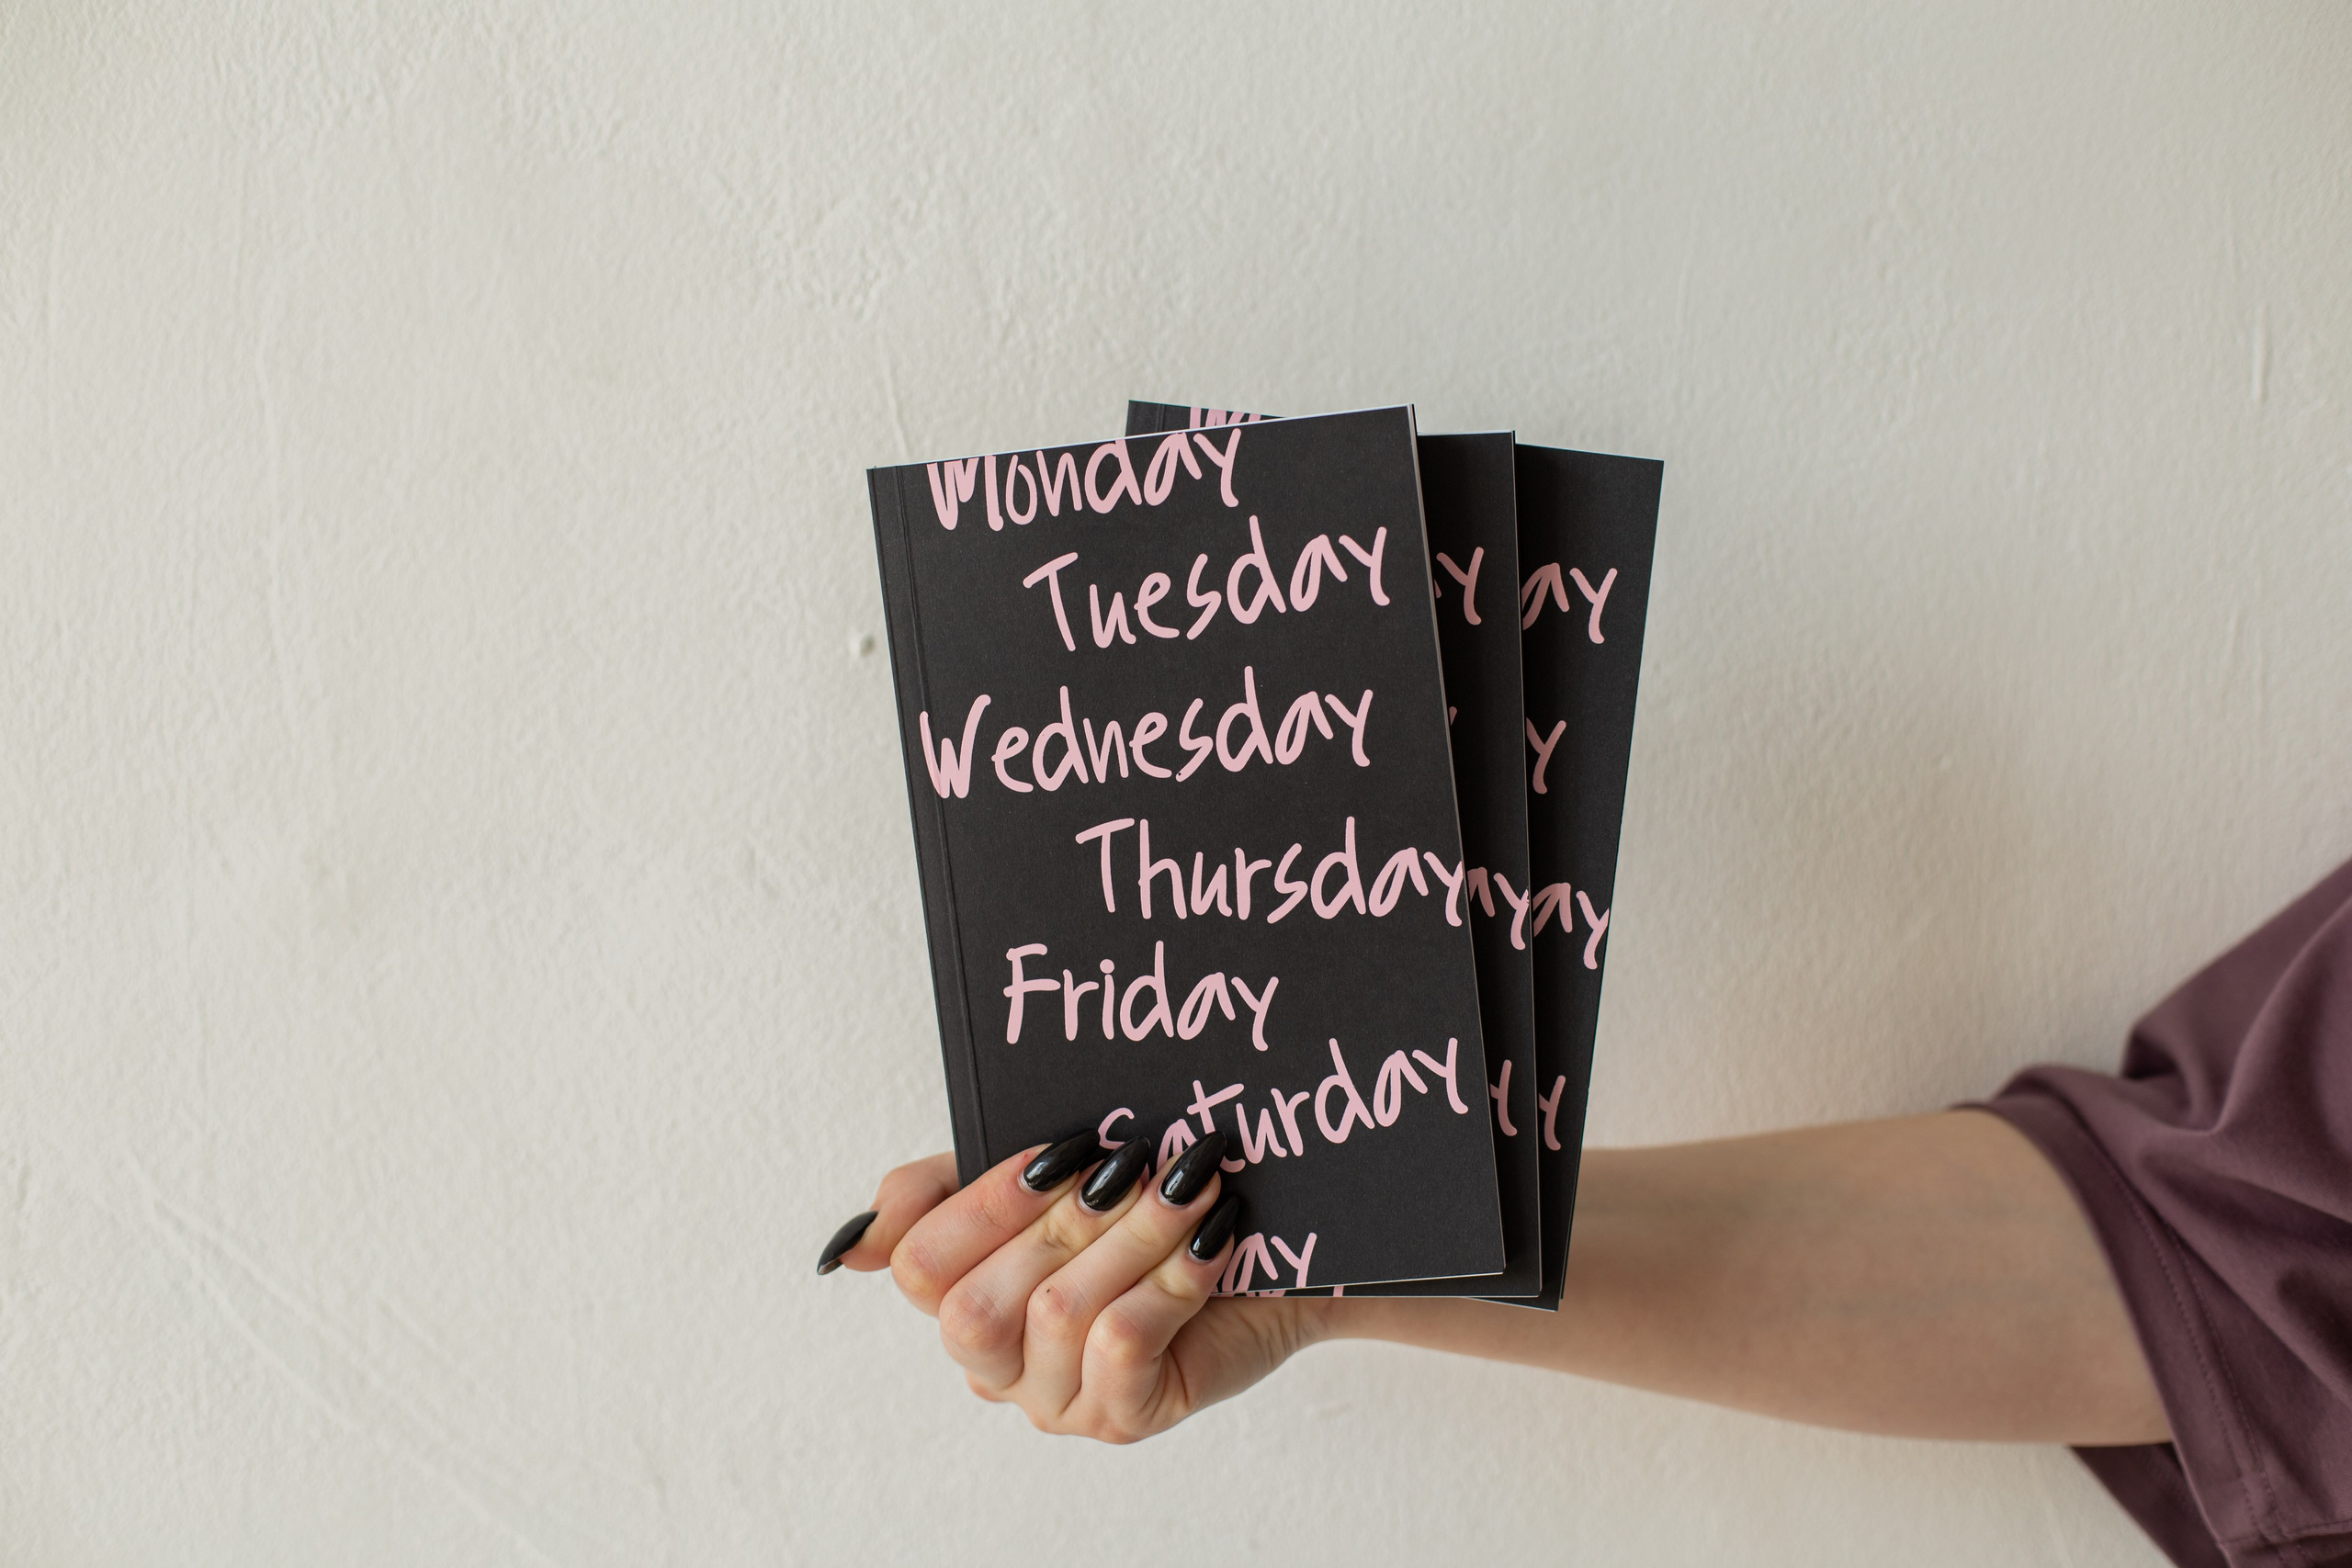 Monday
Tuesday
Wednesday
Thursday
Friday
Saturday